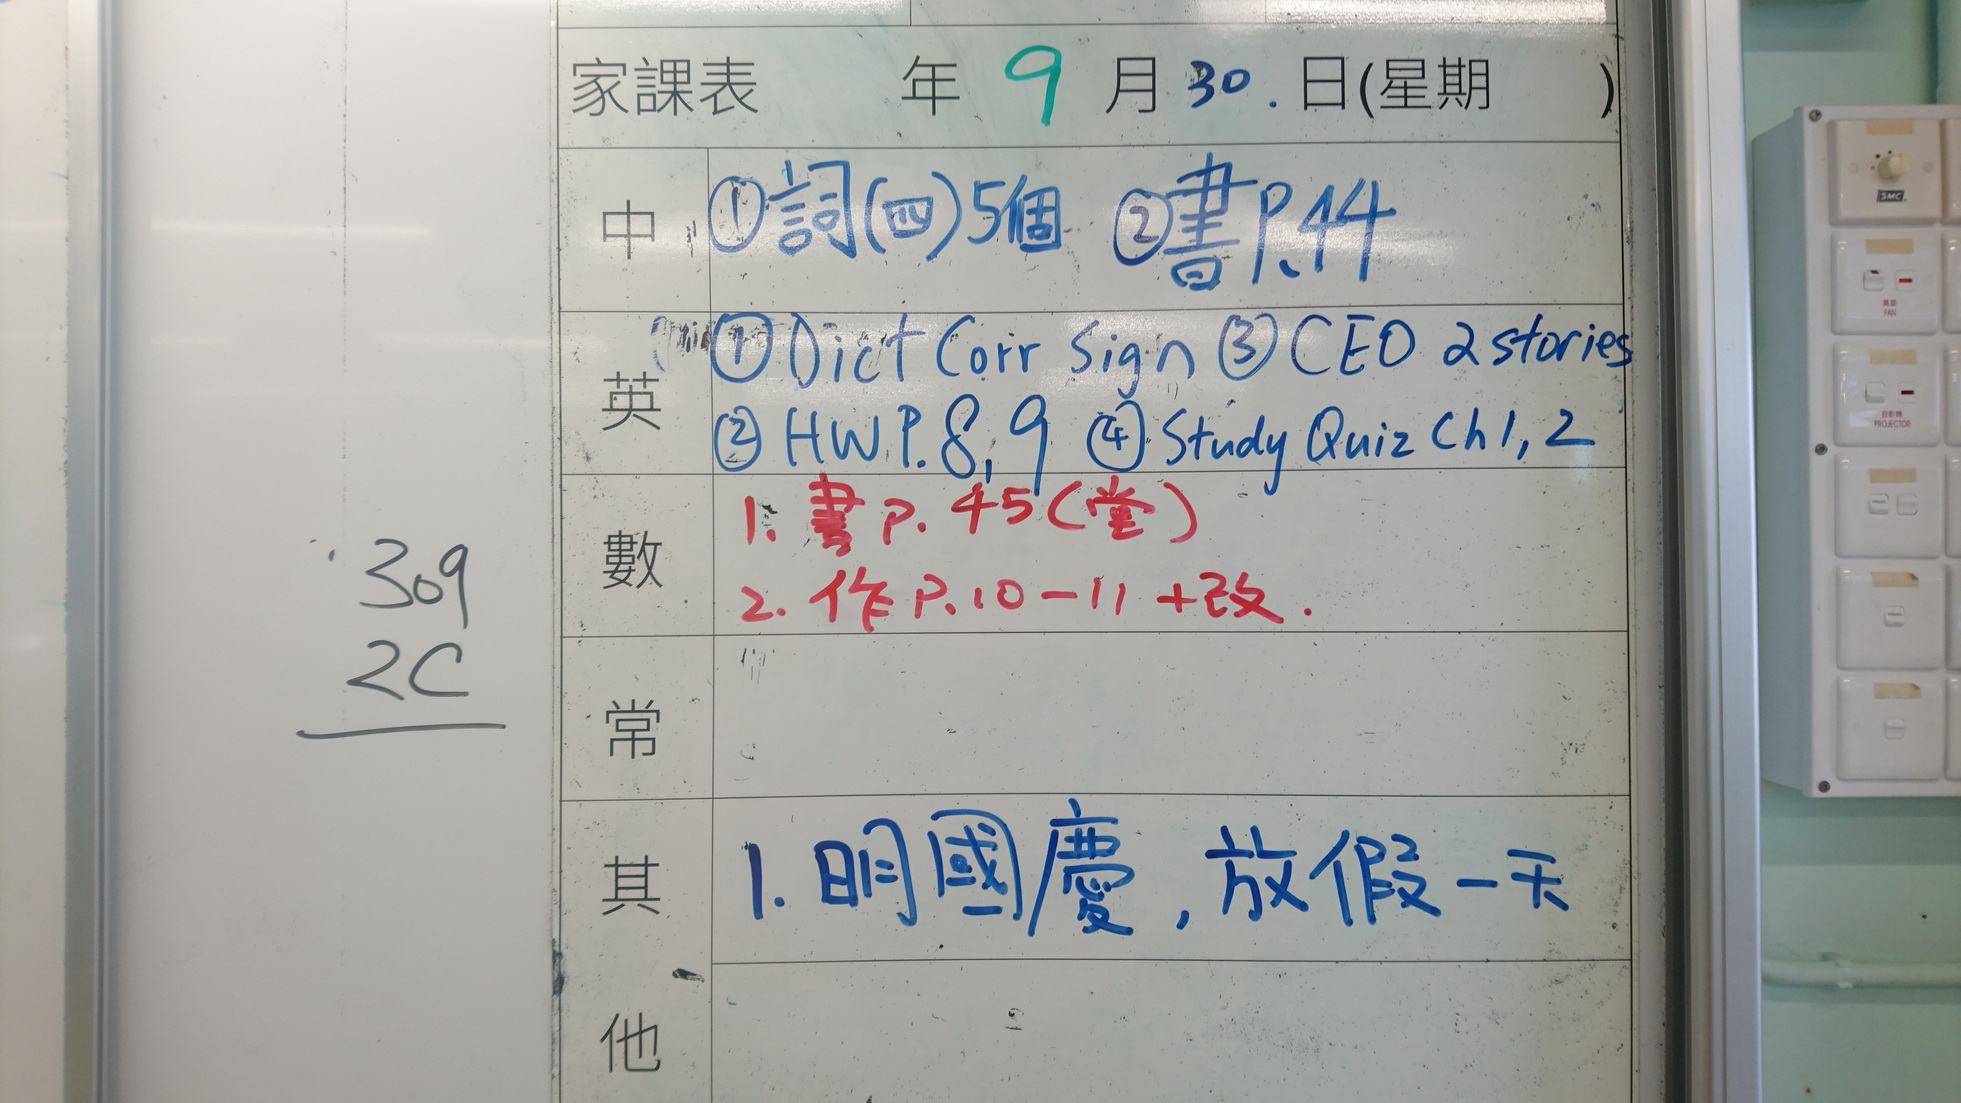 家課表 年 9 月 30. 日(星期 )
中 ①詞(四)5個 ②書P.44
英 ①Dict Corr Sign ③CEO 2 stories
②HW P.8,9 ④Study Quiz Ch 1, 2
數 1. 書 P. 45 (堂)
2. 作 P.10-11 +改.
常
其他 1. 明國慶, 放假一天
309
2C
SMC
風扇
FAN
投影機
PROJECTOR